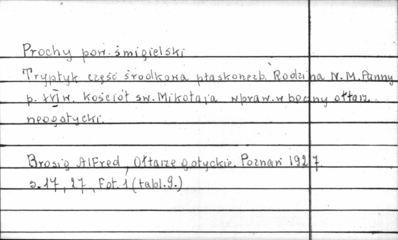 Prochy pow. śmigielski
Tryptyk część środkowa płaskorzeźb. Rodzina N. M. Panny
p. XVI w. Kościół św. Mikołaja wpraw. w boczny ołtarz
neogotycki.
Brosig Alfred, Ołtarze gotyckie. Poznań 1927
s. 17, 27, Fot. 1 (tabl. 9.)